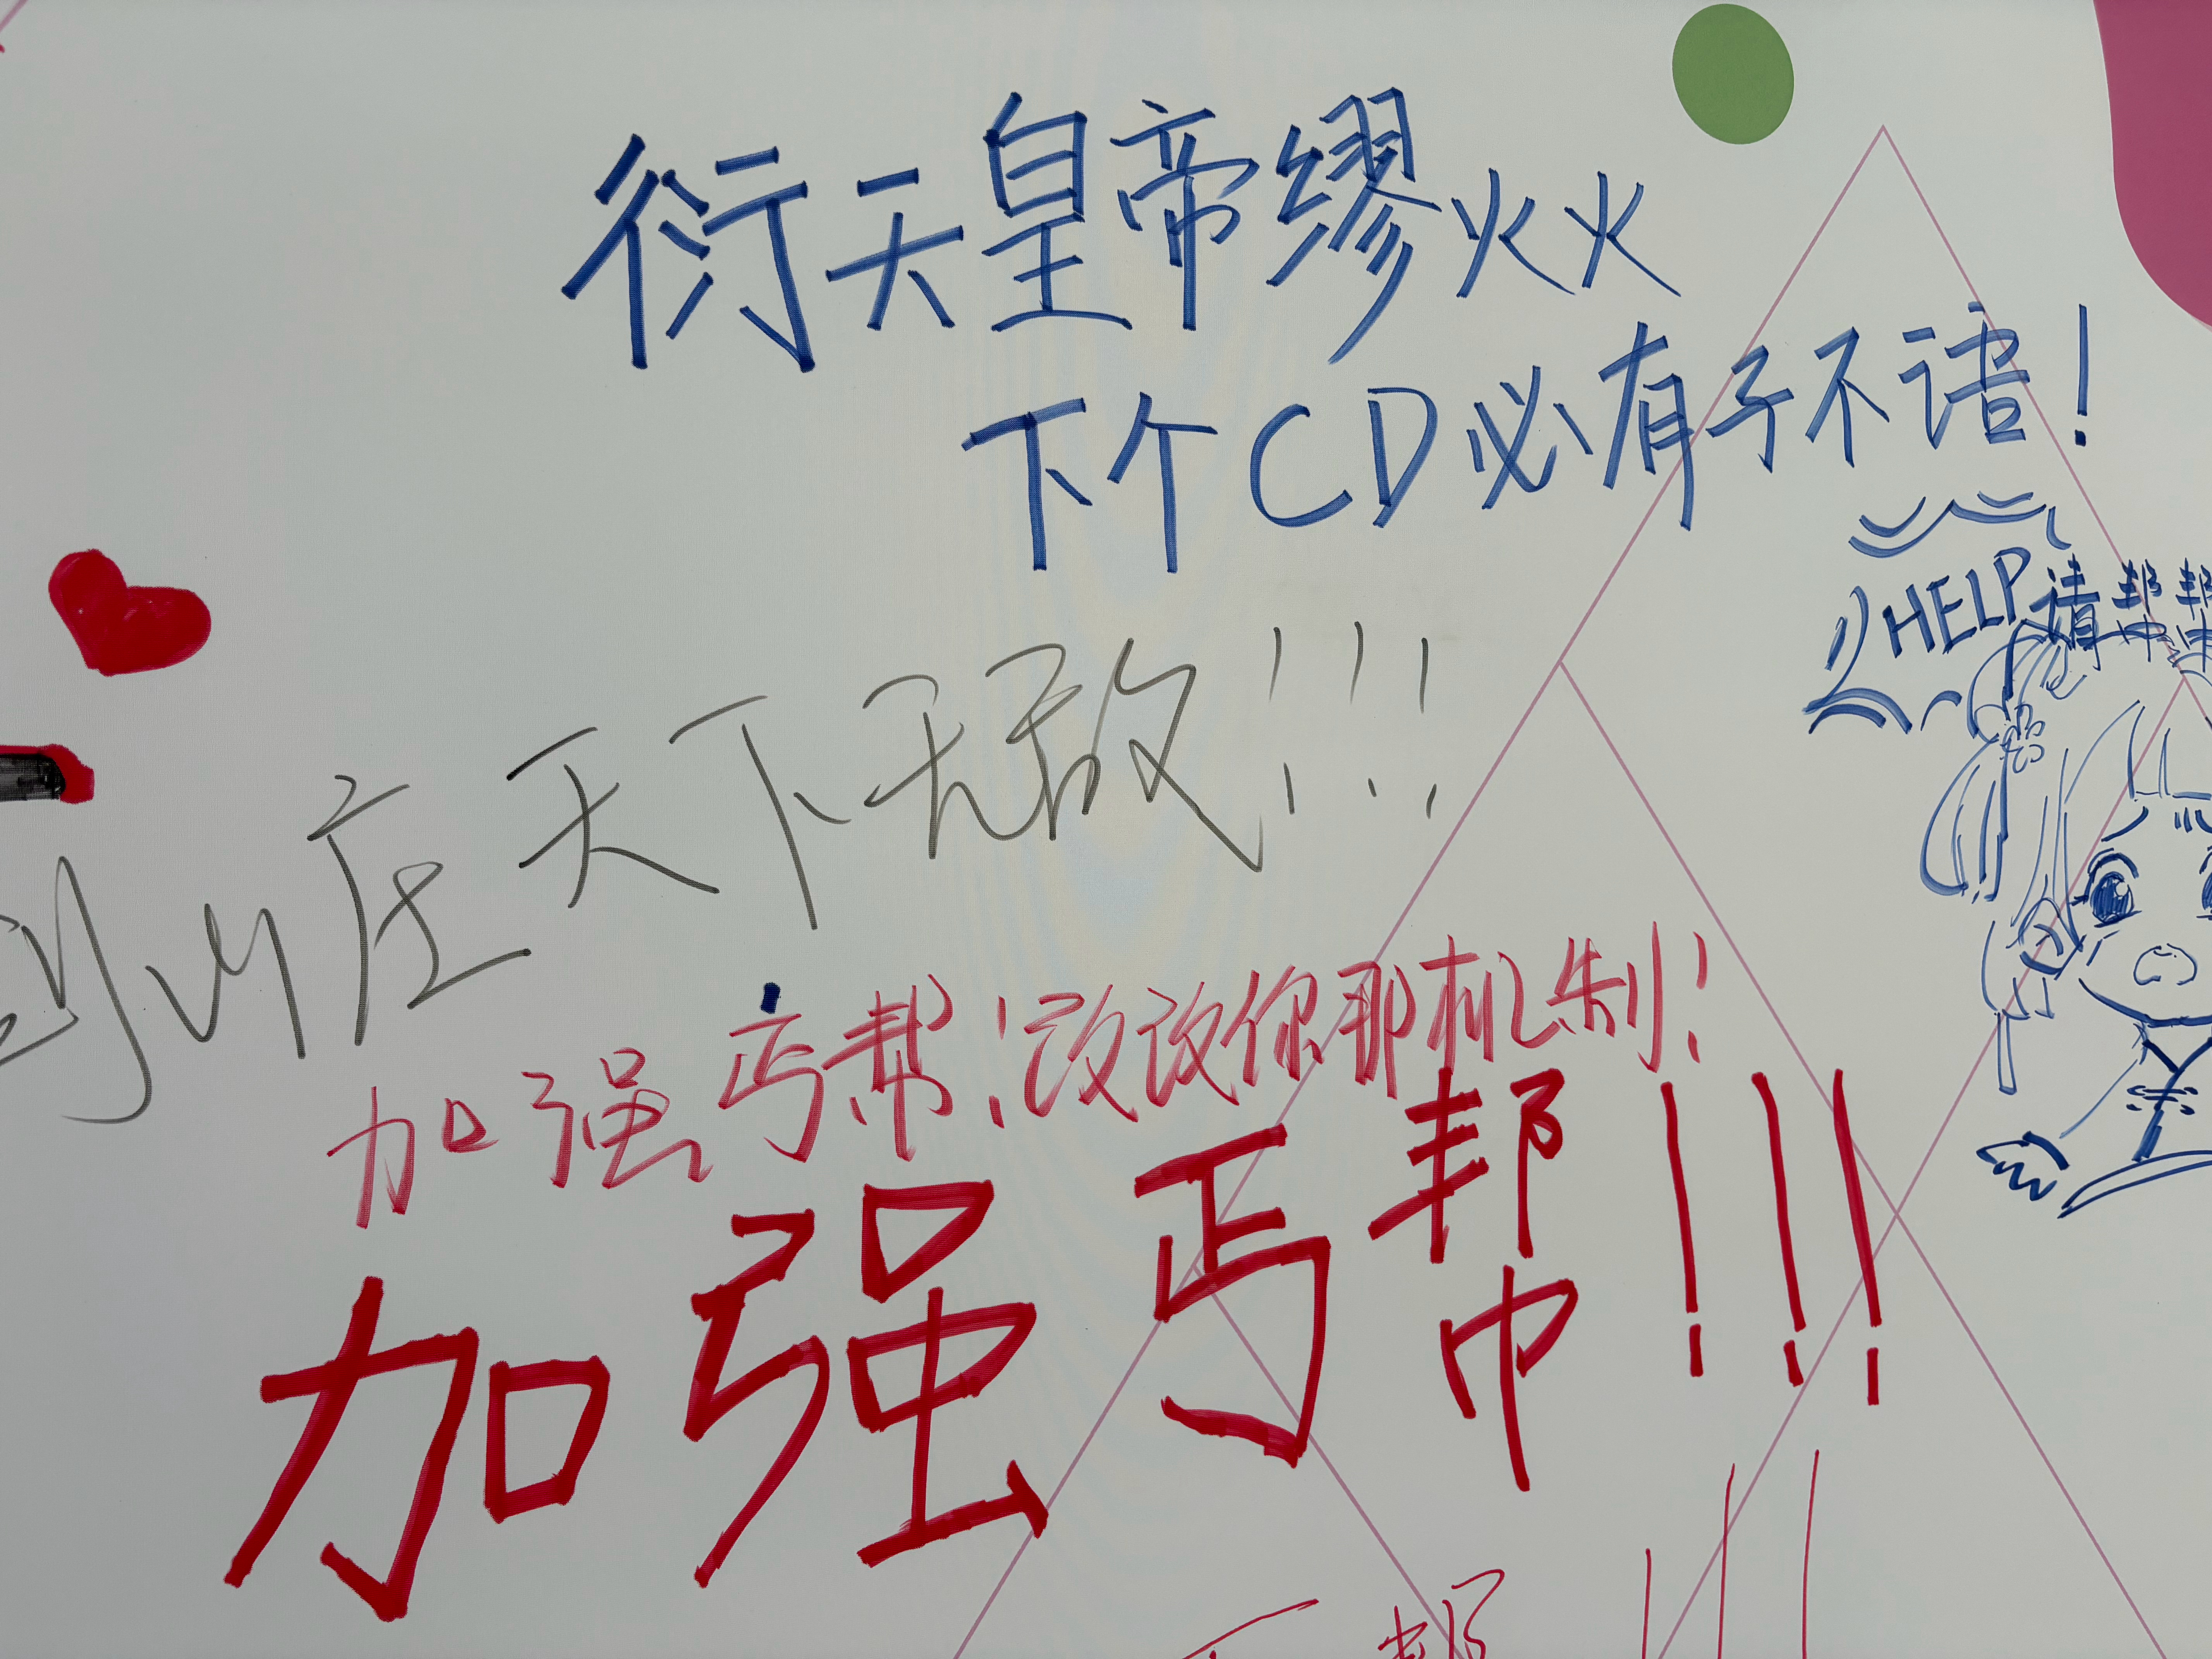 衍天皇帝缪火火
下个CD必有子不语！
HELP请帮帮
山庄天下无敌!!!
加强丐帮！改改你那机制！
加强丐帮!!!